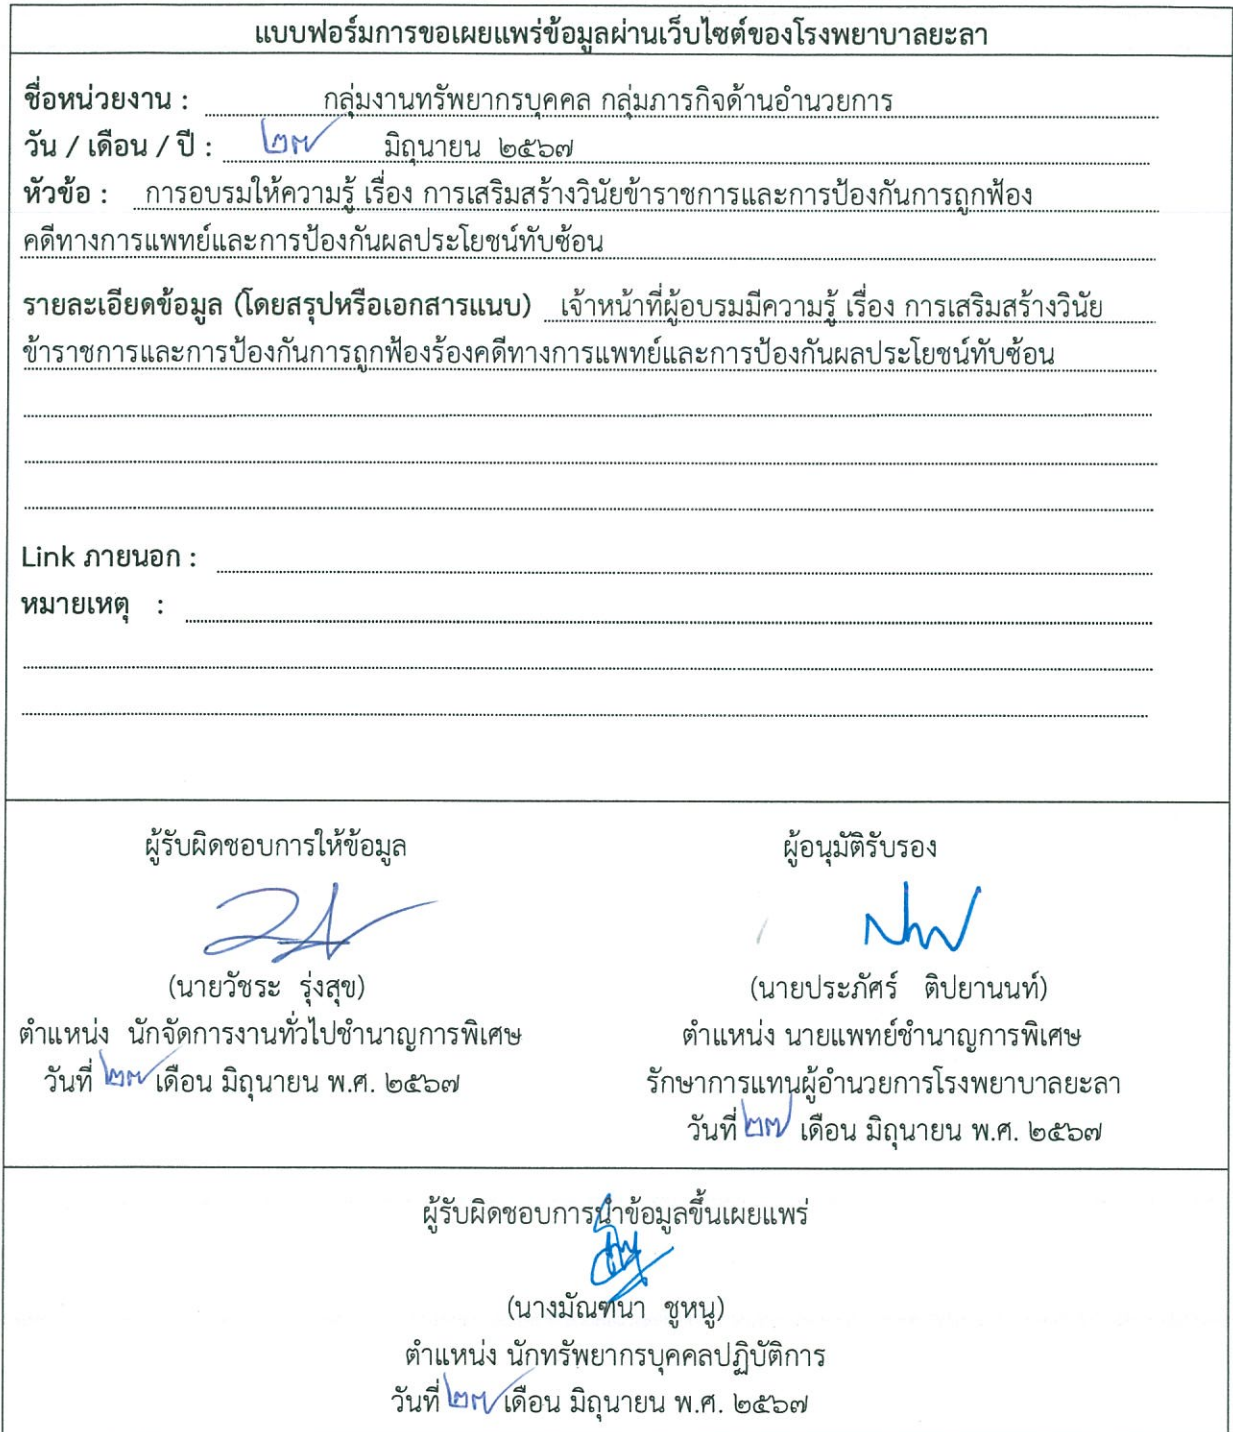 แบบฟอร์มการขอเผยแพร่ข้อมูลผ่านเว็บไซต์ของโรงพยาบาลยะลา
ชื่อหน่วยงาน : กลุ่มงานทรัพยากรบุคคล กลุ่มภารกิจด้านอำนวยการ
วัน / เดือน / ปี : ๒๗ มิถุนายน ๒๕๖๗
หัวข้อ : การอบรมให้ความรู้ เรื่อง การเสริมสร้างวินัยข้าราชการและการป้องกันการถูกฟ้อง
คดีทางการแพทย์และการป้องกันผลประโยชน์ทับซ้อน
รายละเอียดข้อมูล (โดยสรุปหรือเอกสารแนบ) เจ้าหน้าที่ผู้อบรมมีความรู้ เรื่อง การเสริมสร้างวินัย
ข้าราชการและการป้องกันการถูกฟ้องร้องคดีทางการแพทย์และการป้องกันผลประโยชน์ทับซ้อน
Link ภายนอก :
หมายเหตุ :
ผู้รับผิดชอบการให้ข้อมูล ผู้อนุมัติรับรอง
(นายวัชระ รุ่งสุข) (นายประภัศร์ ติปยานนท์)
ตำแหน่ง นักจัดการงานทั่วไปชำนาญการพิเศษ ตำแหน่ง นายแพทย์ชำนาญการพิเศษ
วันที่ ๒๗ เดือน มิถุนายน พ.ศ. ๒๕๖๗ รักษาการแทนผู้อำนวยการโรงพยาบาลยะลา
วันที่ ๒๗ เดือน มิถุนายน พ.ศ. ๒๕๖๗
ผู้รับผิดชอบการนำข้อมูลขึ้นเผยแพร่
(นางมัณฑนา ชูหนู)
ตำแหน่ง นักทรัพยากรบุคคลปฏิบัติการ
วันที่ ๒๗ เดือน มิถุนายน พ.ศ. ๒๕๖๗